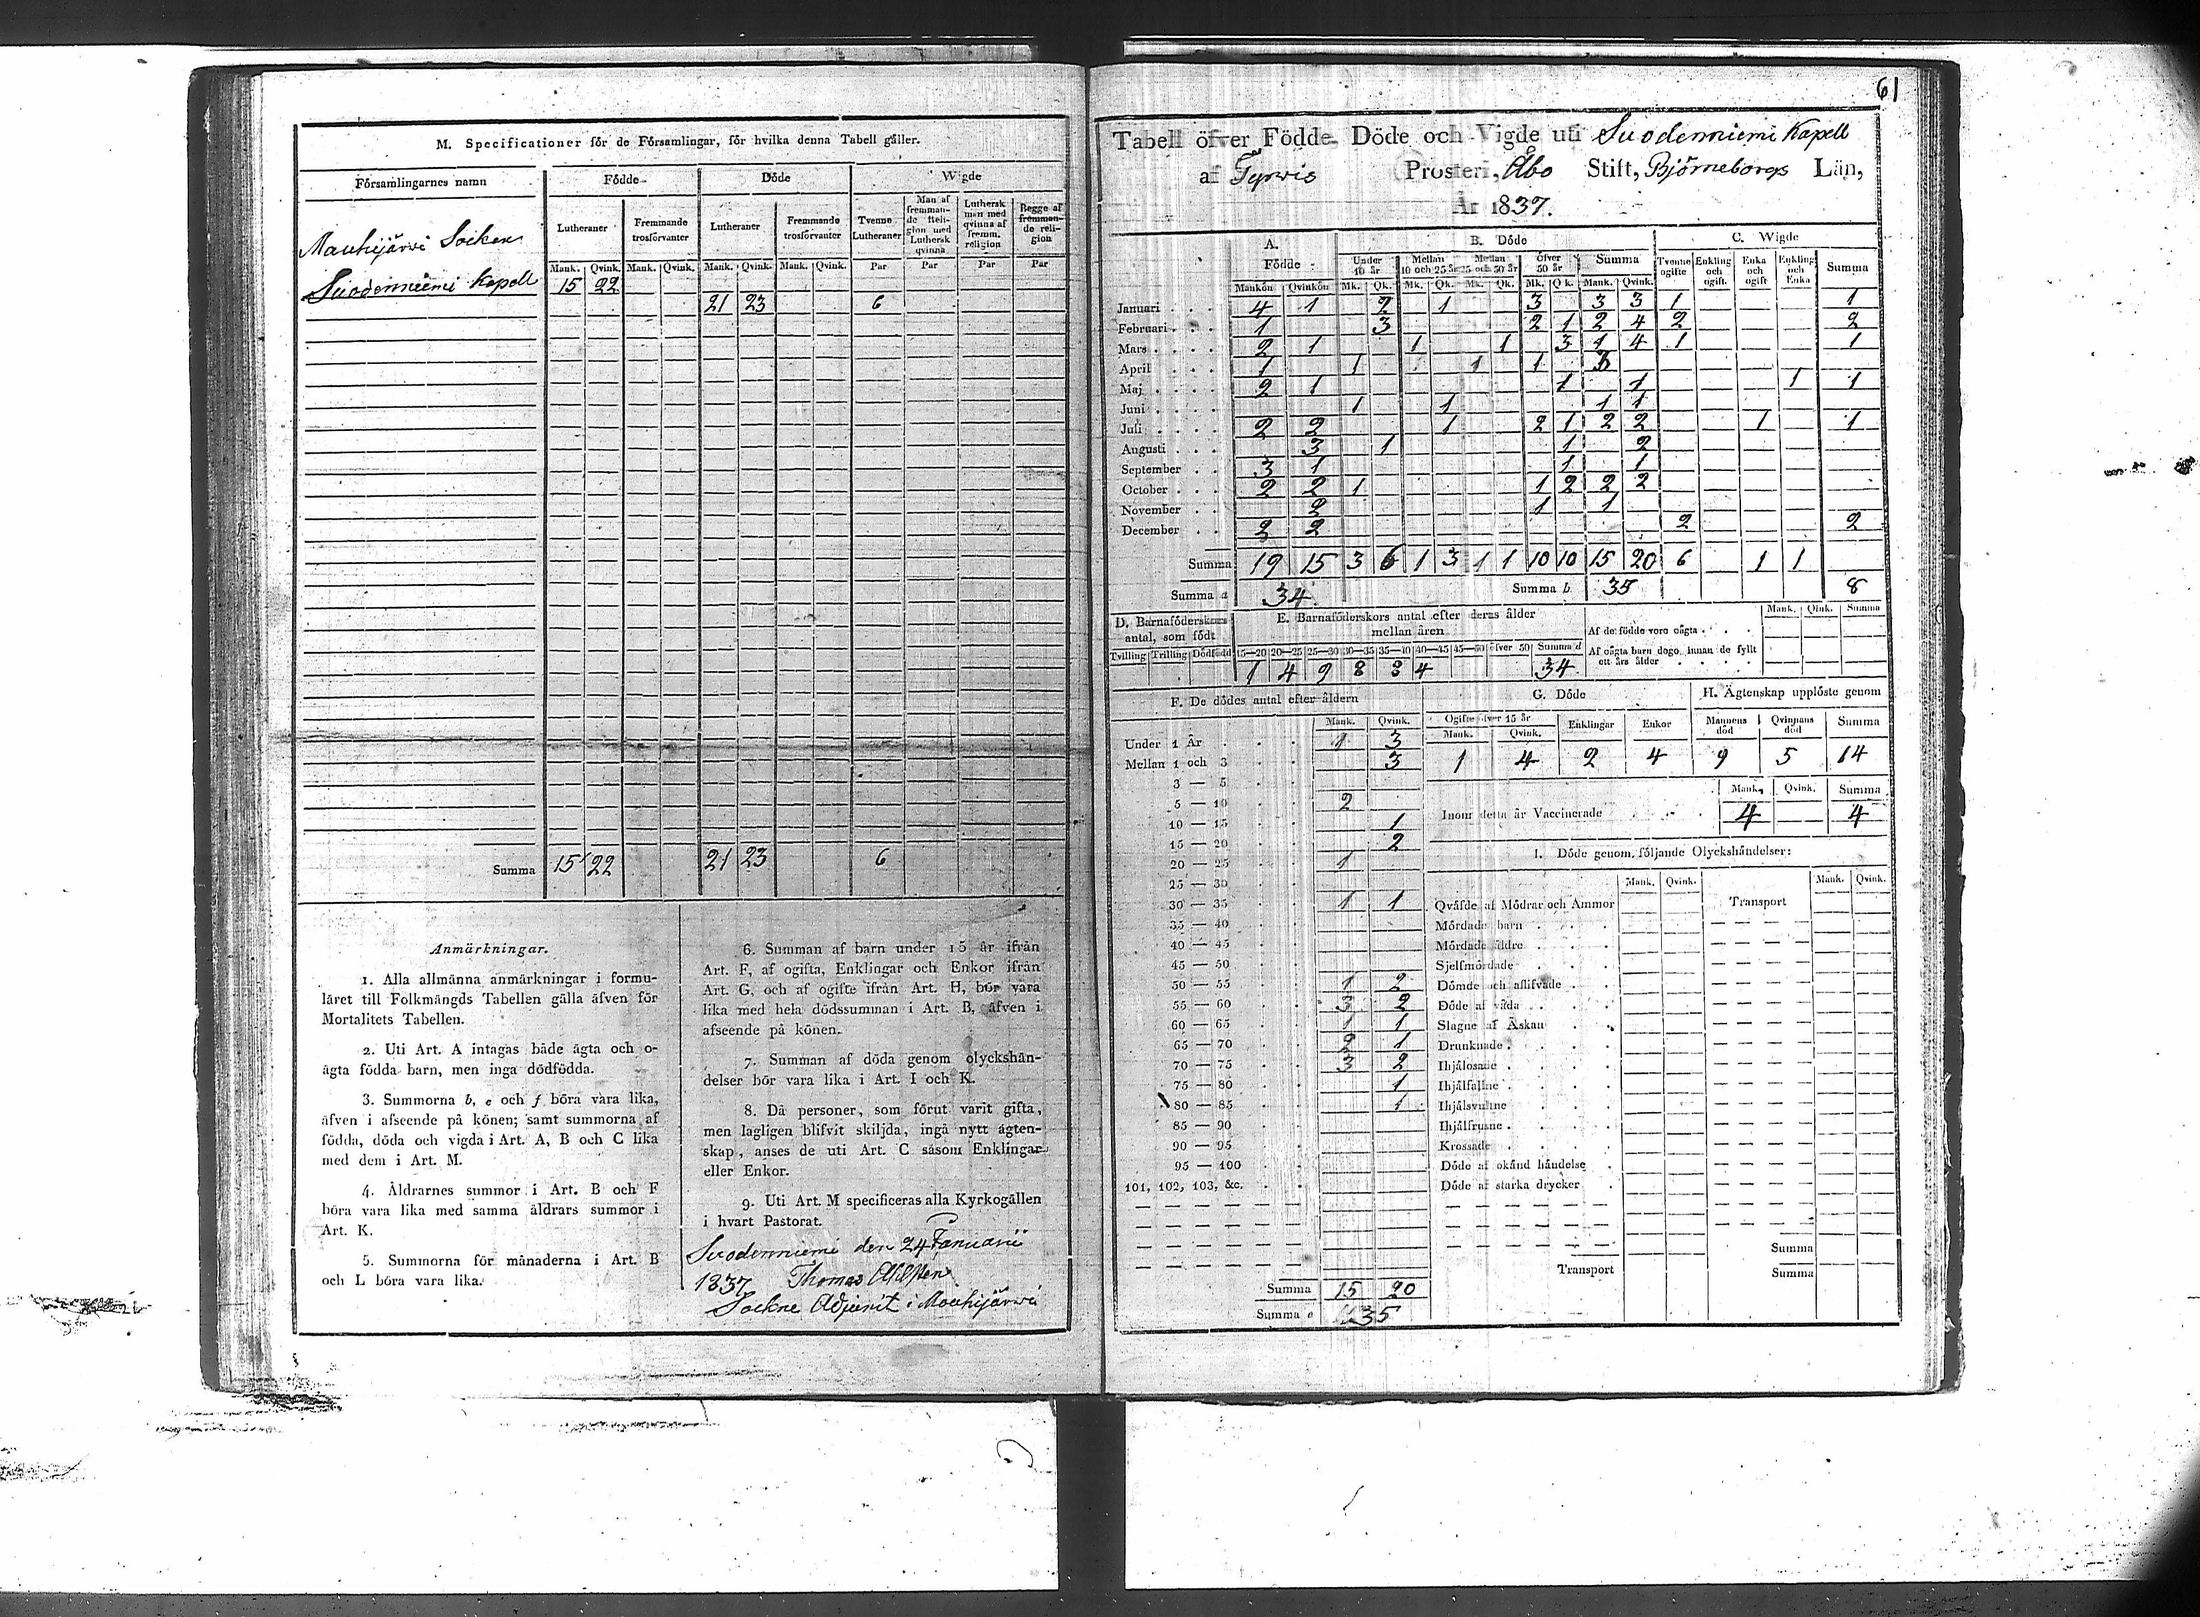 M. Specificationer för de Församlingar, för hvilka denna Tabell gäller.
Församlingarnes namn Födde Döde Wigde
Lutheraner Fremmande trosförvanter Lutheraner Fremmande trosförvanter Tvenne Lutheraner Man af fremmande Religion med Luthersk qvinna Luthersk man med qvinna af fremm. religion Begge af fremmande religion
Mank. Qvink. Mank. Qvink. Mank. Qvink. Mank. Qvink. Par Par Par Par
Mauhijärvi Socken
Suodenniemi Kapell 15 22 21 23 6
Summa 15 22 21 23 6
Anmärkningar.
1. Alla allmänna anmärkningar i formu-
läret till Folkmängds Tabellen gälla äfven för
Mortalitets Tabellen.
2. Uti Art. A intagas både ägta och o-
ägta födda barn, men inga dödfödda.
3. Summorna b, e och f böra vara lika,
äfven i afseende på könen; samt summorna af
födda, döda och vigda i Art. A, B och C lika
med dem i Art. M.
4. Åldrarnes summor i Art. B och F
böra vara lika med samma åldrars summor i
Art. K.
5. Summorna för månaderna i Art. B
och L böra vara lika.
6. Summan af barn under 15 år ifrån
Art. F, af ogifta, Enklingar och Enkor ifrån
Art. G, och af ogifte ifrån Art. H, bör vara
lika med hela dödssumman i Art. B, äfven i
afseende på könen.
7. Summan af döda genom olyckshän-
delser bör vara lika i Art. I och K.
8. Då personer, som förut varit gifta,
men lagligen blifvit skiljda, ingå nytt ägten-
skap, anses de uti Art. C såsom Enklingar
eller Enkor.
9. Uti Art. M specificeras alla Kyrkogällen
i hvart Pastorat.
Suodenniemi den 24 Januarii
1837 Thomas
Sockne Adjunct i Mouhijärvi
61
Tabell öfver Födde, Döde och Vigde uti Suodenniemi Kapell
af Tyrvis Prosteri, Åbo Stift, Björneborgs Län,
År 1837.
A. Födde B. Döde C. Wigde
Under 10 år Mellan 10 och 25 år Mellan 25 och 50 år Öfver 50 år Summa Tvenne ogifte Enkling och ogift. Enka och ogift Enkling och Enka Summa
Mankön Qvinkön Mk. Qk. Mk. Qk. Mk. Qk. Mk. Qk. Mank. Qvink.
Januari 4 1 2 1 3 3 3 1 1
Februari 1 3 2 1 2 4 2 2
Mars 2 1 1 1 3 1 4 1 1
April 1 1 1 1 3
Maj 2 1 1 1 1 1
Juni 1 1 1 1
Juli 2 2 1 2 1 2 2 1 1
Augusti 3 1 1 2
September 3 1 1 1
October 2 2 1 1 2 2 2
November 2 1 1
December 2 2 2 2
Summa 19 15 3 6 1 3 1 1 10 10 15 20 6 1 1
Summa a 34. Summa b 35 8
D. Barnaföderskors antal, som födt
Tvilling Trilling Dödfödd
E. Barnaföderskors antal efter deras ålder mellan åren
15—20 20—25 25—30 30—35 35—40 40—45 45—50 öfver 50 Summa d
1 4 9 8 8 4 34
Mank. Qink. Summa
Af de födde voro oägta
Af oägta barn dogo innan de fyllt ett års ålder
F. De dödes antal efter åldern
Mank. Qvink.
Under 1 År 1 3
Mellan 1 och 3 3
3 — 5
5 — 10 2
10 — 15 1
15 — 20 2
20 — 25 1
25 — 30
30 — 35 1 1
35 — 40
40 — 45
45 — 50
50 — 55 1 2
55 — 60 3 2
60 — 65 1 1
65 — 70 2 1
70 — 75 3 2
75 — 80 1
80 — 85 1
85 — 90
90 — 95
95 — 100
101, 102, 103, &c.
Summa 15 20
Summa e 35
G. Döde
Ogifte öfver 15 år Enklingar Enkor
Mank. Qvink.
1 4 2 4
H. Ägtenskap upplöste genom
Mannens död Qvinnans död Summa
9 5 14
Mank. Qvink. Summa
Inom detta år Vaccinerade 4 4
I. Döde genom följande Olyckshändelser:
Mank. Qvink. Mank. Qvink.
Qväfde af Mödrar och Ammor Transport
Mördade barn
Mördade äldre
Sjelfmördade
Dömde och aflifvade
Döde af våda
Slagne af Åskan
Drunknade
Ihjälosade
Ihjälfallne
Ihjälsvultne
Ihjälfrusne
Krossade
Döde af okänd händelse
Döde af starka drycker
Summa
Transport Summa